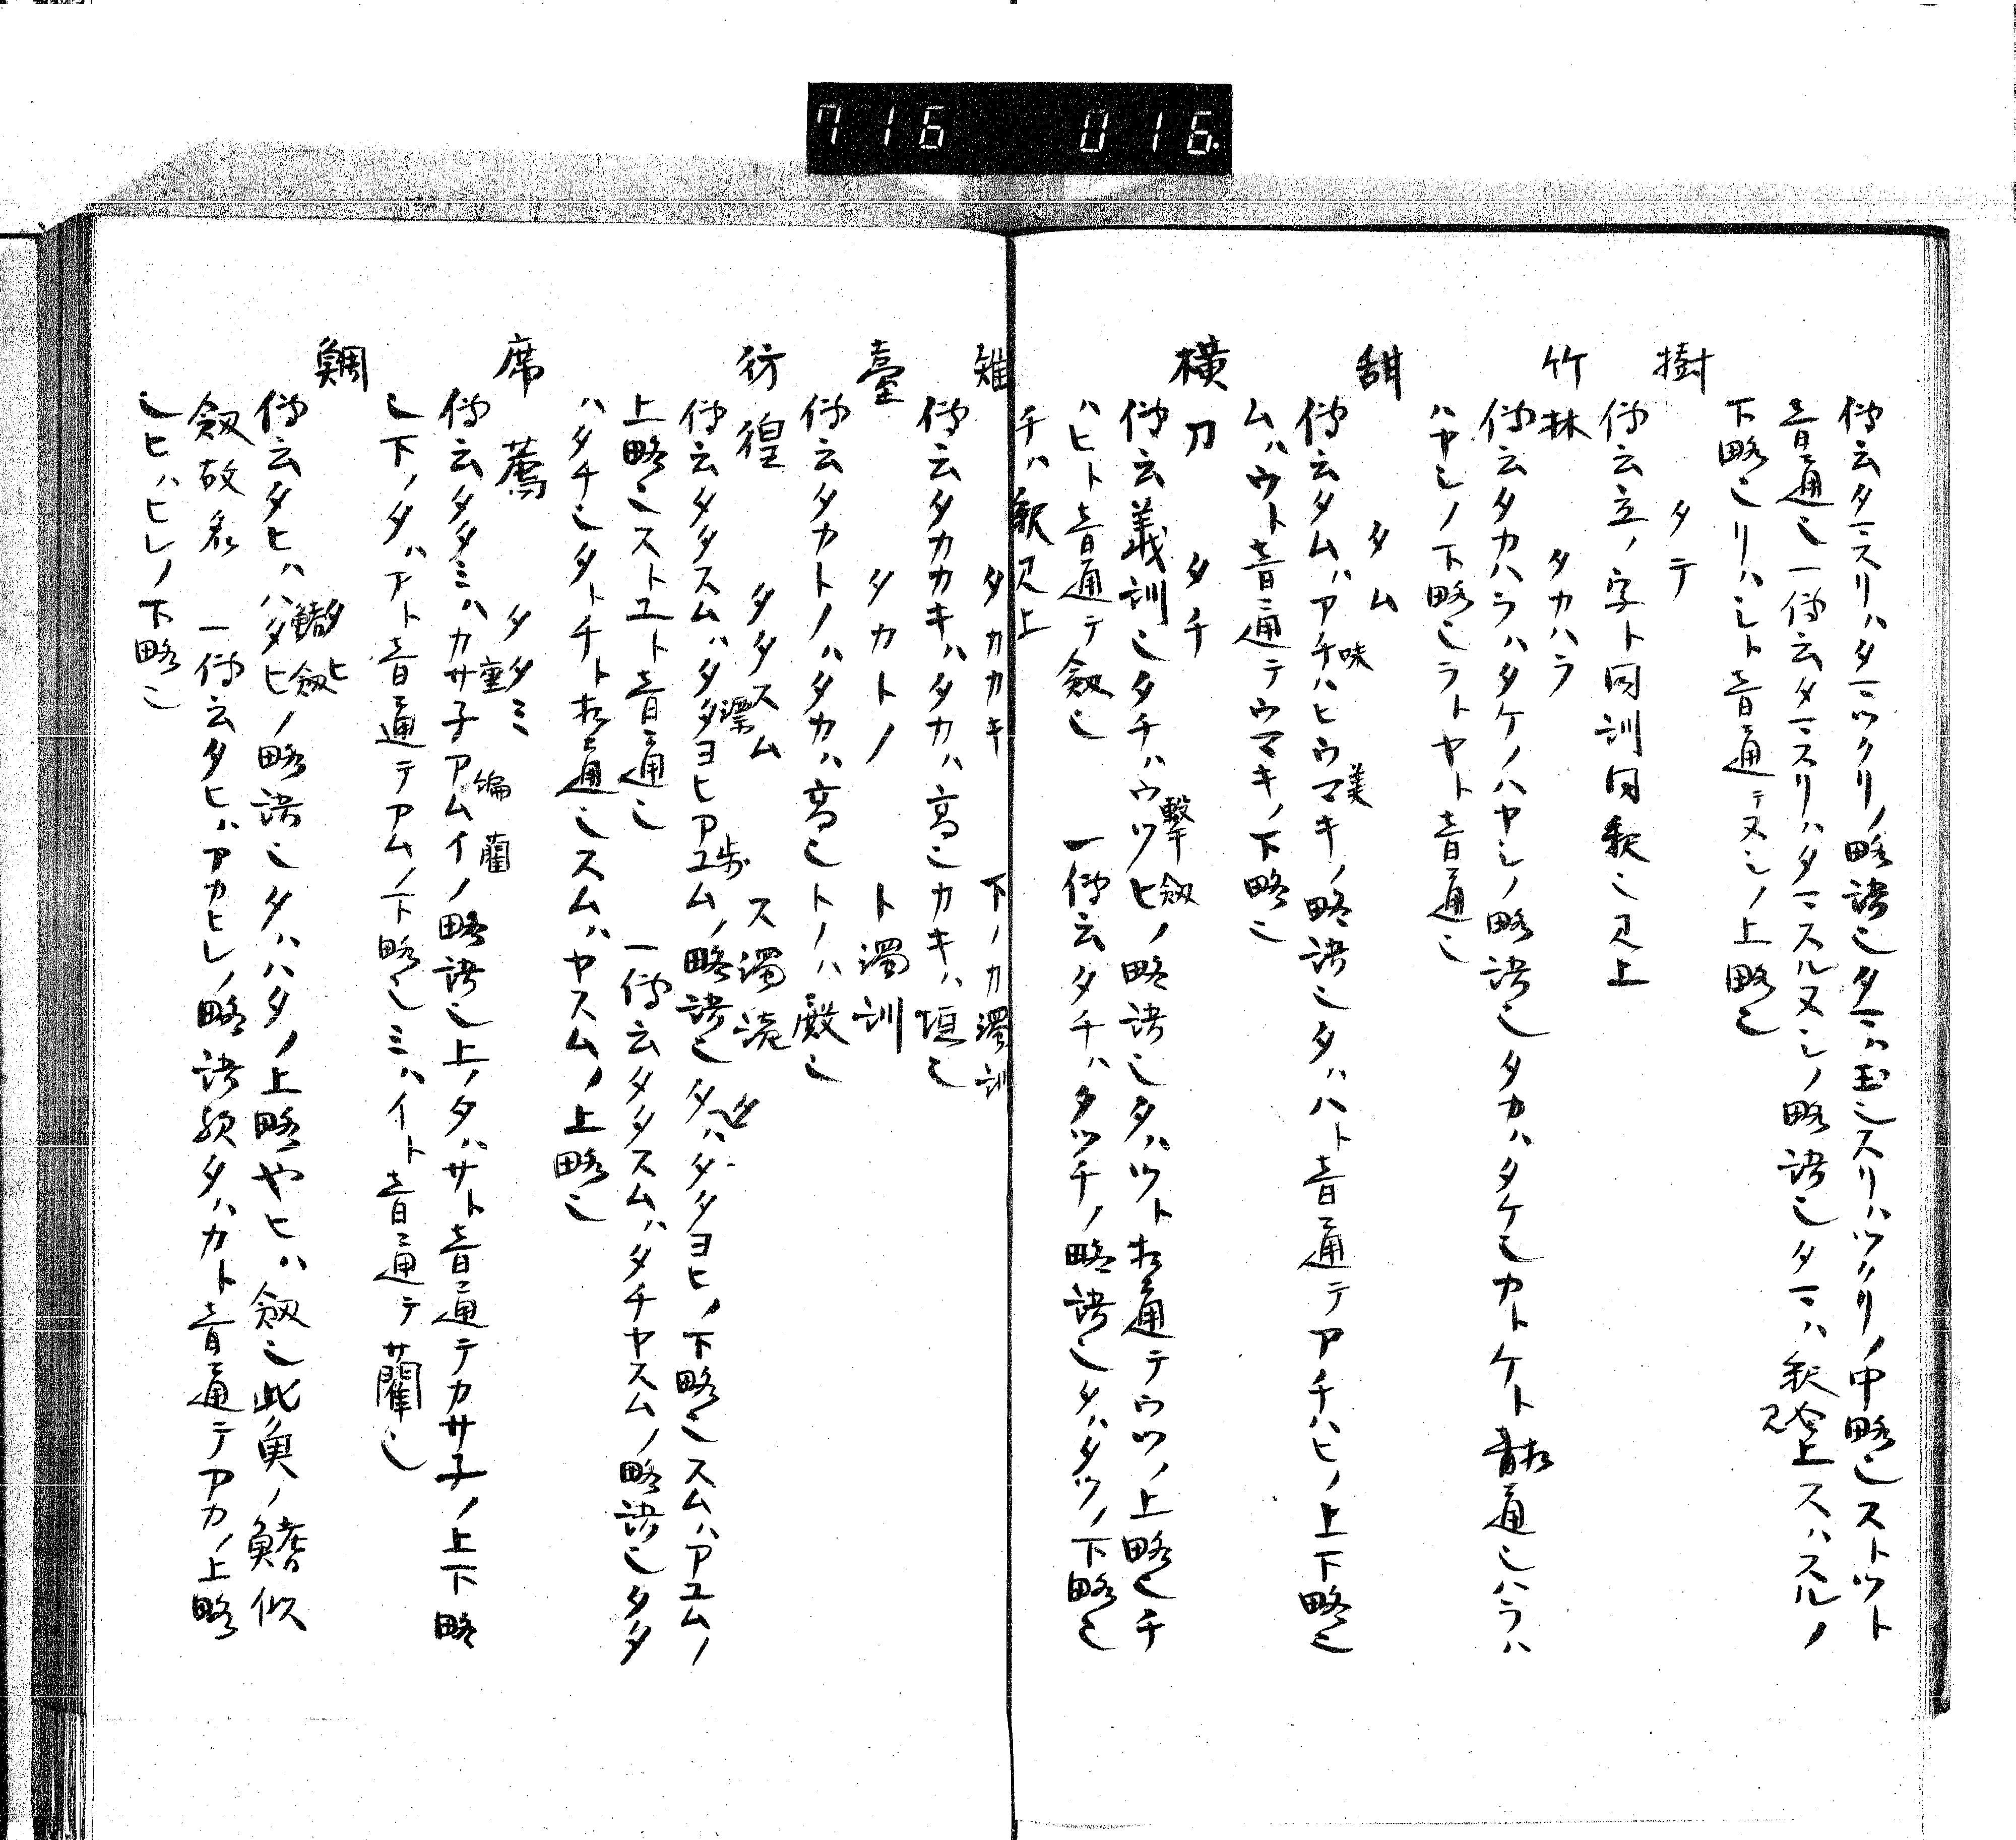 716 016.
傳云タマスリハタマツクリノ略語也タマハ玉也スリハツクリノ中略也ストツト
音通也一傳云タマスリハタマスルヌシノ略語也タマハ釈見上スハスルノ
下略也リハシト音通テヌシノ上略也
樹 タテ
傳云立ノ字ト同訓同釈也見上
竹林 タカハラ
傳云タカハラハタケノハヤシノ略語也タカハタケ也カトケト相通也ハラハ
ハヤシノ下略也ラトヤト音通也
甜 タム
傳云タムハアチハヒ味ウマキ美ノ略語也タハハト音通テアチハヒノ上下略也
ムハウト音通テウマキノ下略也
横刀 タチ
傳云義訓也タチハウツヒ擊劔ノ略語也タハツト相通テウツノ上略也チ
ハヒト音通テ劔也 一傳云タチハタツチノ略語也タハタツノ下略也
チハ釈見上
雉 タカカキ 下ノカ濁訓
傳云タカカキハタカハ高也カキハ垣也
臺 タカトノ ト濁訓
傳云タカトノハタカハ高也トノハ殿也
彷徨 タタスム ス濁読
傳云タタスムハタタヨヒ漂アユム歩ノ略語也タタハタタヨヒノ下略也スムハアユムノ
上略也ストユト音通也 一傳云タタスムハタチヤスムノ略語也タタ
ハタチ也タトチト相通也スムハヤスムノ上略也
席薦 タタミ
傳云タタミハカサ子重アムイ編藺ノ略語也上ノタハサト音通テカサ子ノ上下略
也下ノタハアト音通テアムノ下略也ミハイト音通テ藺也
鯛 タヒ
傳云タヒハハタヒ鰭劔ノ略語也タハハタノ上略やヒハ劔也此魚ノ鰭似
劔故名 一傳云タヒハアカヒレノ略語歟タハカト音通テアカノ上略
也ヒハヒレノ下略也